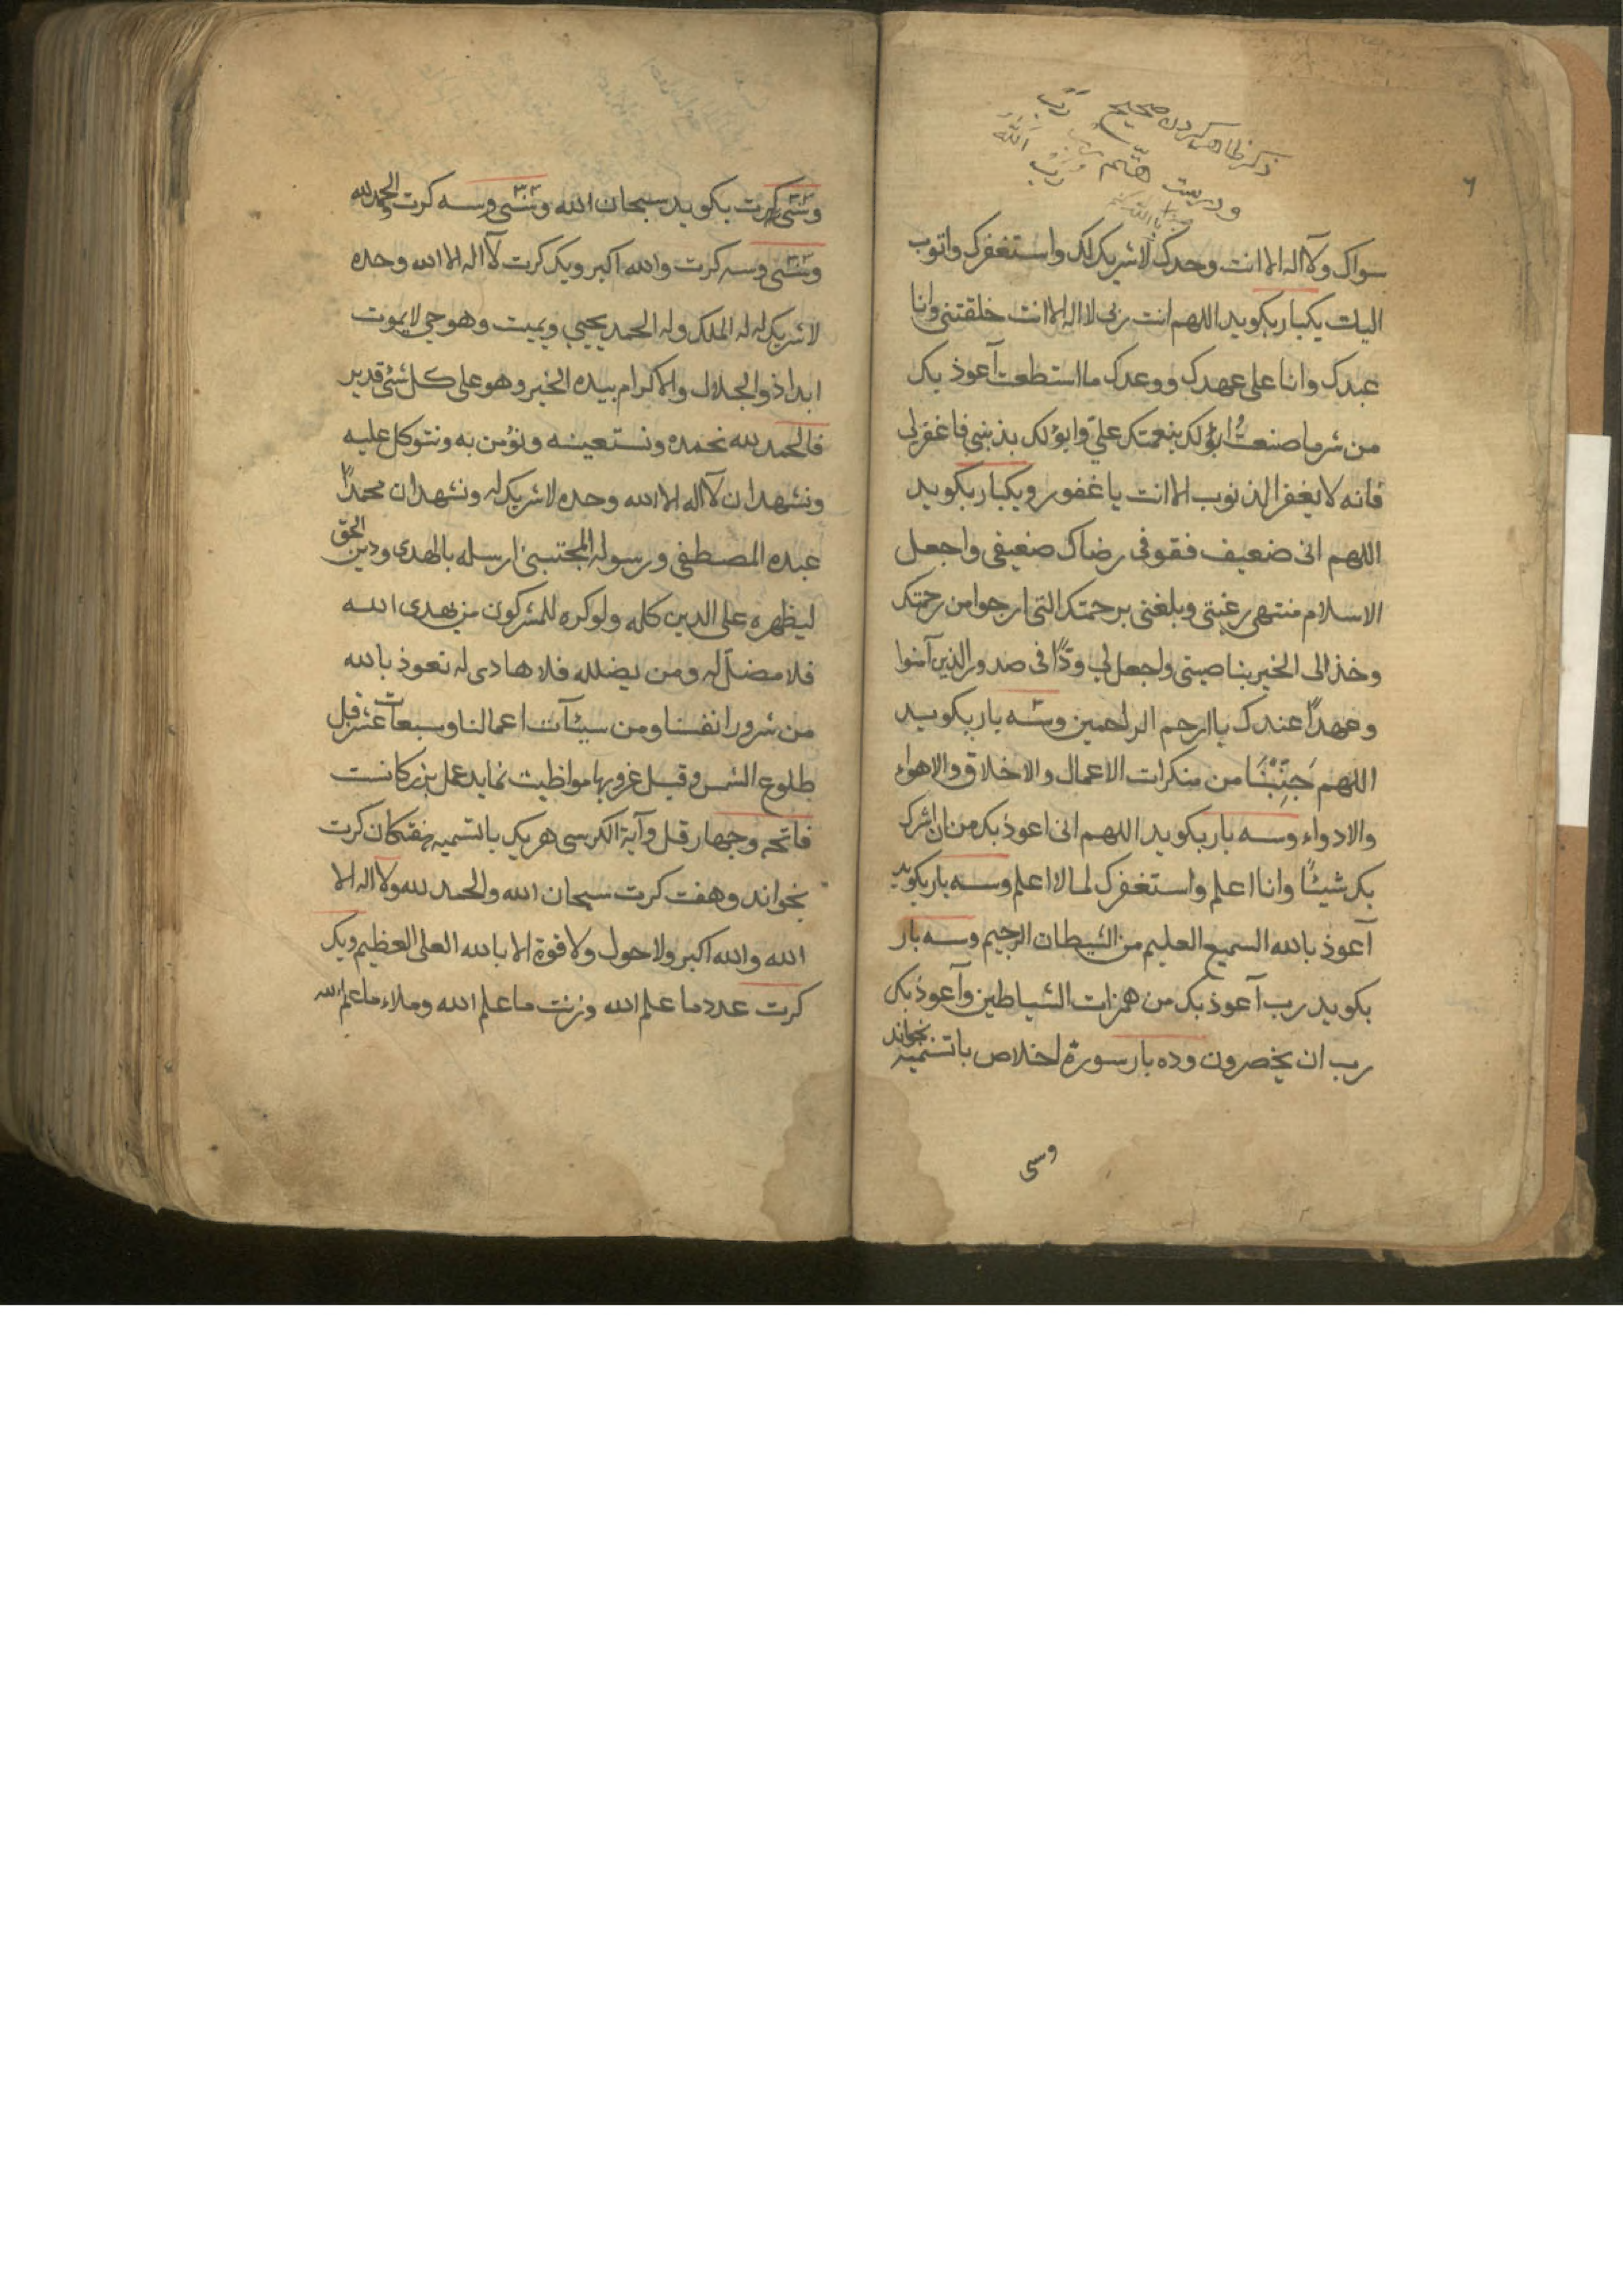 ٦
ذکر ظاهر کردن صحیح
ودریست
سواک ولآاله الاانت وحدک لاشریک لک واستغفرک واتوب
الیک یکبار بکوید اللهم انت ربی لااله الاانت خلقتنی وانا
عبدک وانا علی عهدک ووعدک مااستطعت آعوذ بک
من شر ما صنعتُ ابؤلک بنعمتک علیّ وابؤلک بذنبی فاغفرلی
فانه لا یغفر الذنوب الاانت یا غفور ویکبار بکوید
اللهم انی ضعیف فقو فی رضاک ضعیفی واجعل
الاسلام منتهی رغبتی وبلغنی برحمتک التی ارجوا من رحمتک
وخذ الی الخیر بناصیتی واجعل لی ودًّا فی صدور الذین آمنوا
وعهدًا عندک یا ارحم الراحمین وسه بار بکوید
اللهم جَنِّبْنَا من منکرات الاعمال والاخلاق والاهواء
والادواء وسه بار بکوید اللهم انی اعوذ بک من ان اشرک
بک شیئًا وانا اعلم واستغفرک لما لا اعلم وسه بار بکوید
آعوذ بالله السمیع العلیم من الشیطان الرجیم وسه بار
بکوید رب آعوذ بک من همزات الشیاطین وآعوذ بک
رب ان یحضرون وده بار سورة اخلاص باتسمیه بخواند
وسی
وسی کرت بکوید سبحان الله وسی وسه کرت والحمدلله
وسی وسه کرت والله اکبر ویک کرت لآاله الاالله وحده
لاشریک له له الملک وله الحمد یحیی ویمیت وهو حی لایموت
ابدا ذوالجلال والاکرام بیده الخیر وهو علی کل شئی قدیر
فالحمد لله نحمده ونستعینه ونؤمن به ونتوکل علیه
ونشهد ان لآاله الاالله وحده لاشریک له ونشهد ان محمدًا
عبده المصطفی ورسوله المجتبی ارسله بالهدی ودین الحق
لیظهره علی الدین کله ولو کره للمشرکون من یهدی الله
فلا مضل له ومن یضلله فلا هادی له نعوذ بالله
من شرور انفسنا ومن سیئآت اعمالنا وسبعات عشر قبل
طلوع الشمس وقبل غروبها مواظبت نماید عمل بزرکانست
فاتحه وچهار قل وآیة الکرسی هر یک باتسمیه هفتکان کرت
بخواند وهفت کرت سبحان الله والحمد لله ولااله الا
الله والله اکبر ولا حول ولا قوة الا بالله العلی العظیم ویک
کرت عدد ما علم الله وزنت ما علم الله وملاء ما علم الله